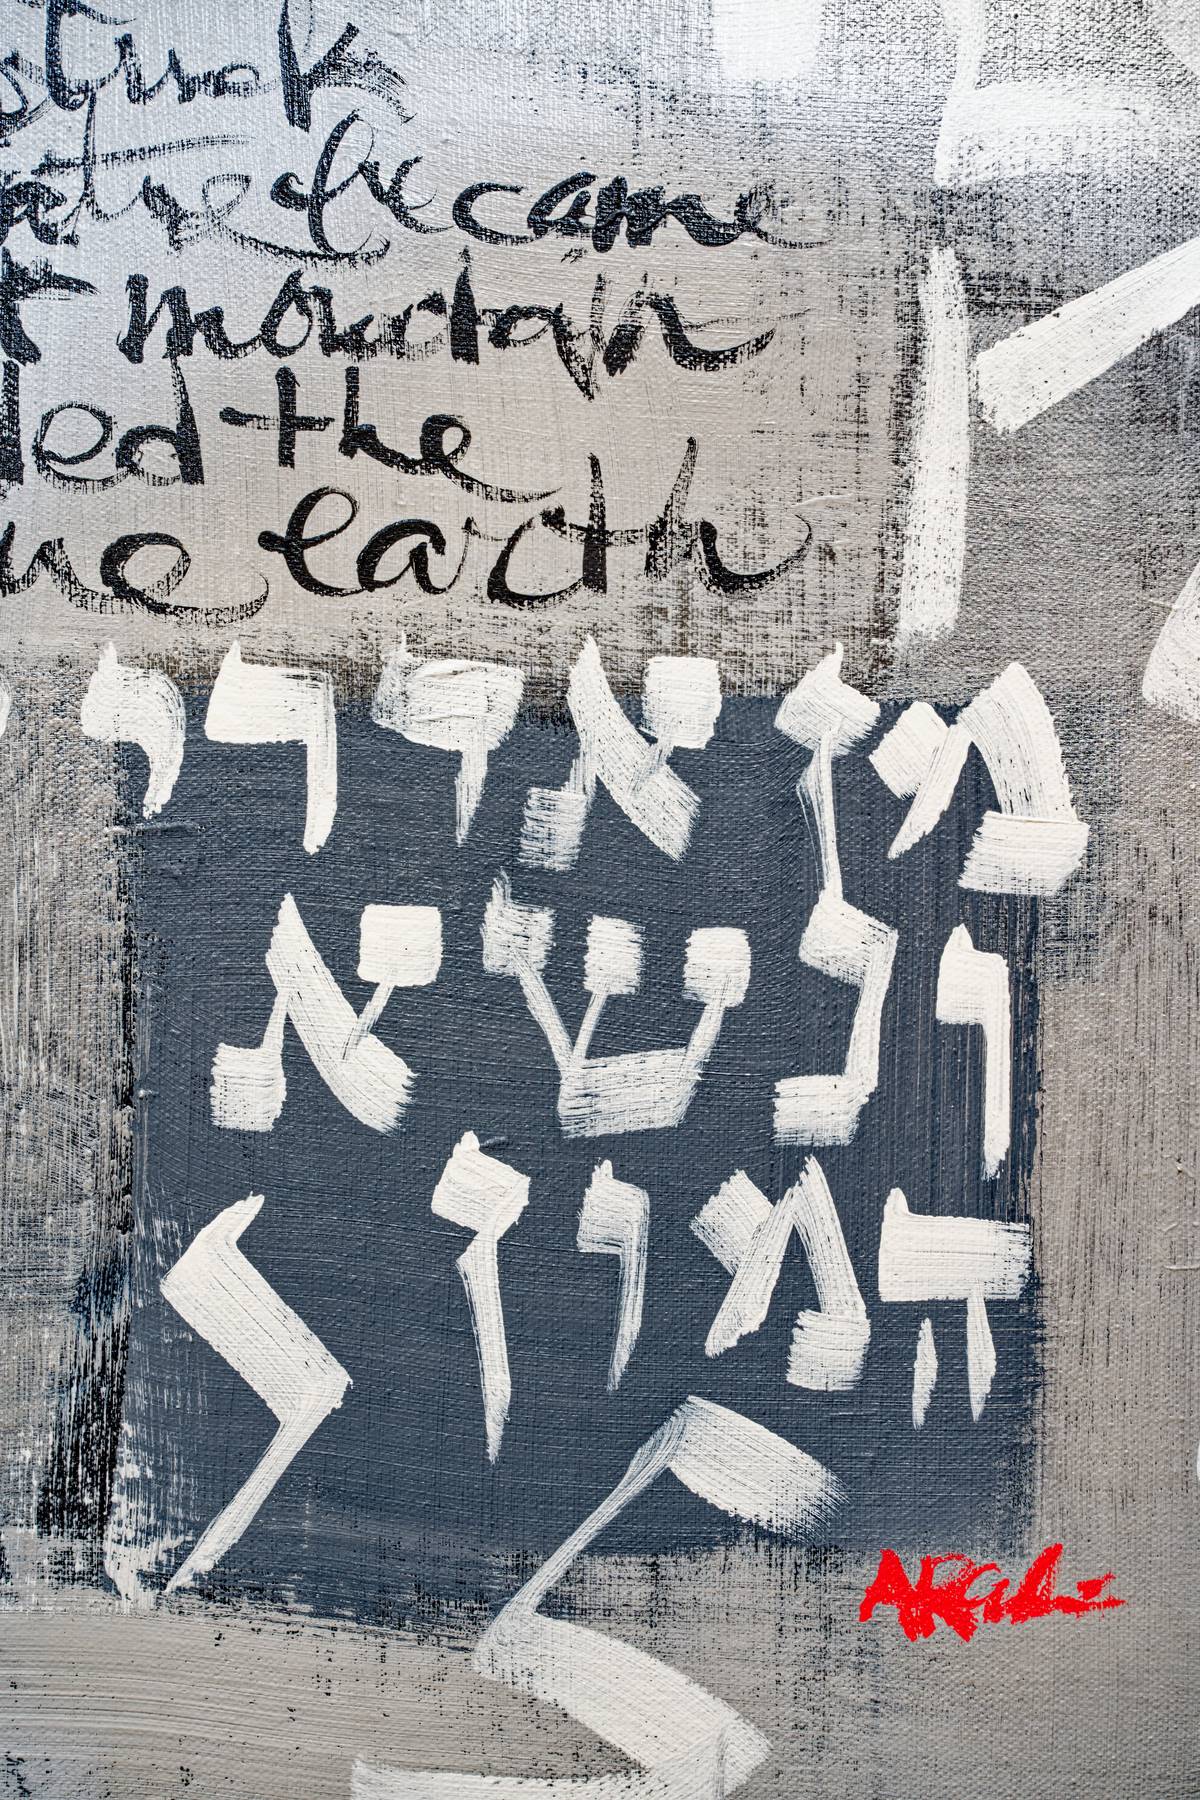 struck
became
mountain
led the
earth
מן אדרי
ונשא
המון